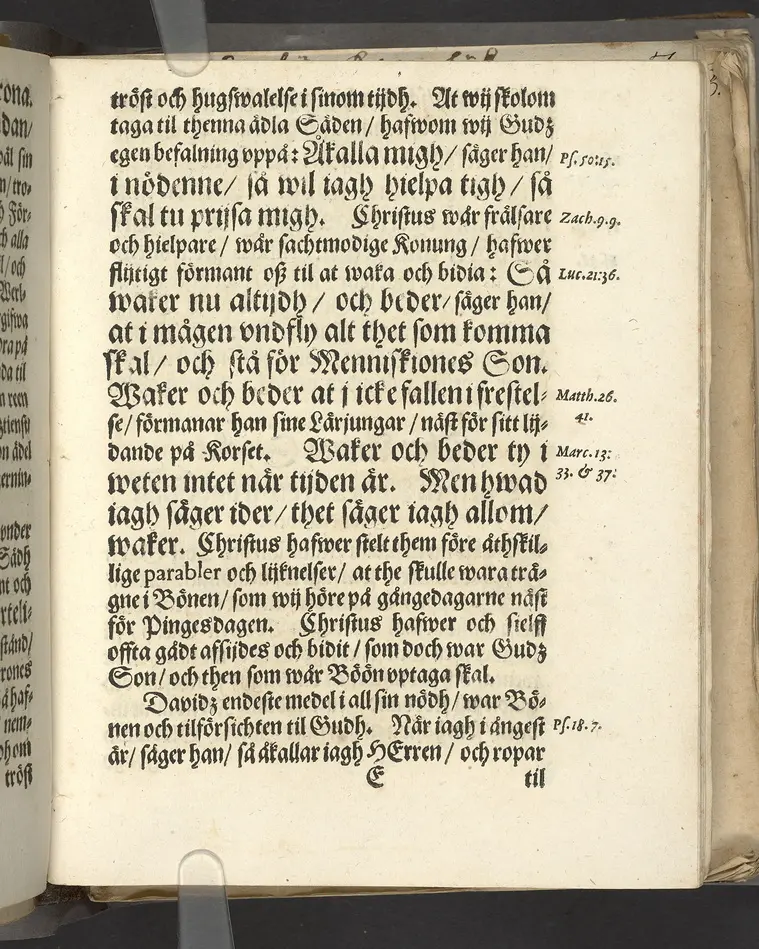 tröst och hugswalelse i sinom tijdh. At wij skolom
taga til thenna ädla Säden / hafwom wij Gudz
egen befalning vppå: Åkalla migh / säger han / Ps. 50:15.
i nödenne / så wil iagh hielpa tigh / så
skal tu prijsa migh. Christus wår frälsare Zach. 9. 9.
och hielpare / wår sachtmodige Konung / hafwer
flijtigt förmant oß til at waka och bidia: Så Luc. 21:36.
waker nu altijdh / och beder / säger han /
at i mågen vndfly alt thet som komma
skal / och stå för Menniskiones Son.
Waker och beder at j icke fallen i frestel- Matth. 26.
se / förmanar han sine Lärjungar / näst för sitt lij- 41.
dande på Korset. Waker och beder ty i Marc. 13:
weten intet när tijden är. Men hwad 33. & 37:
iagh säger ider / thet säger iagh allom /
waker. Christus hafwer stelt them före åthskil-
lige parabler och lijknelser / at the skulle wara trä-
gne i Bönen / som wij höre på gångedagarne näst
för Pingesdagen. Christus hafwer och sielff
offta gådt afsijdes och bidit / som doch war Gudz
Son / och then som wår Böön vptaga skal.
Davidz endeste medel i all sin nödh / war Bö-
nen och tilförsichten til Gudh. När iagh i ångest Ps. 18. 7.
är / säger han / så åkallar iagh HErren / och ropar
E til
ona.
dan/
sin
För-
alla
/ och
på
da til
vnder
Sädh
och
stånd/
rones
nem-
tröst